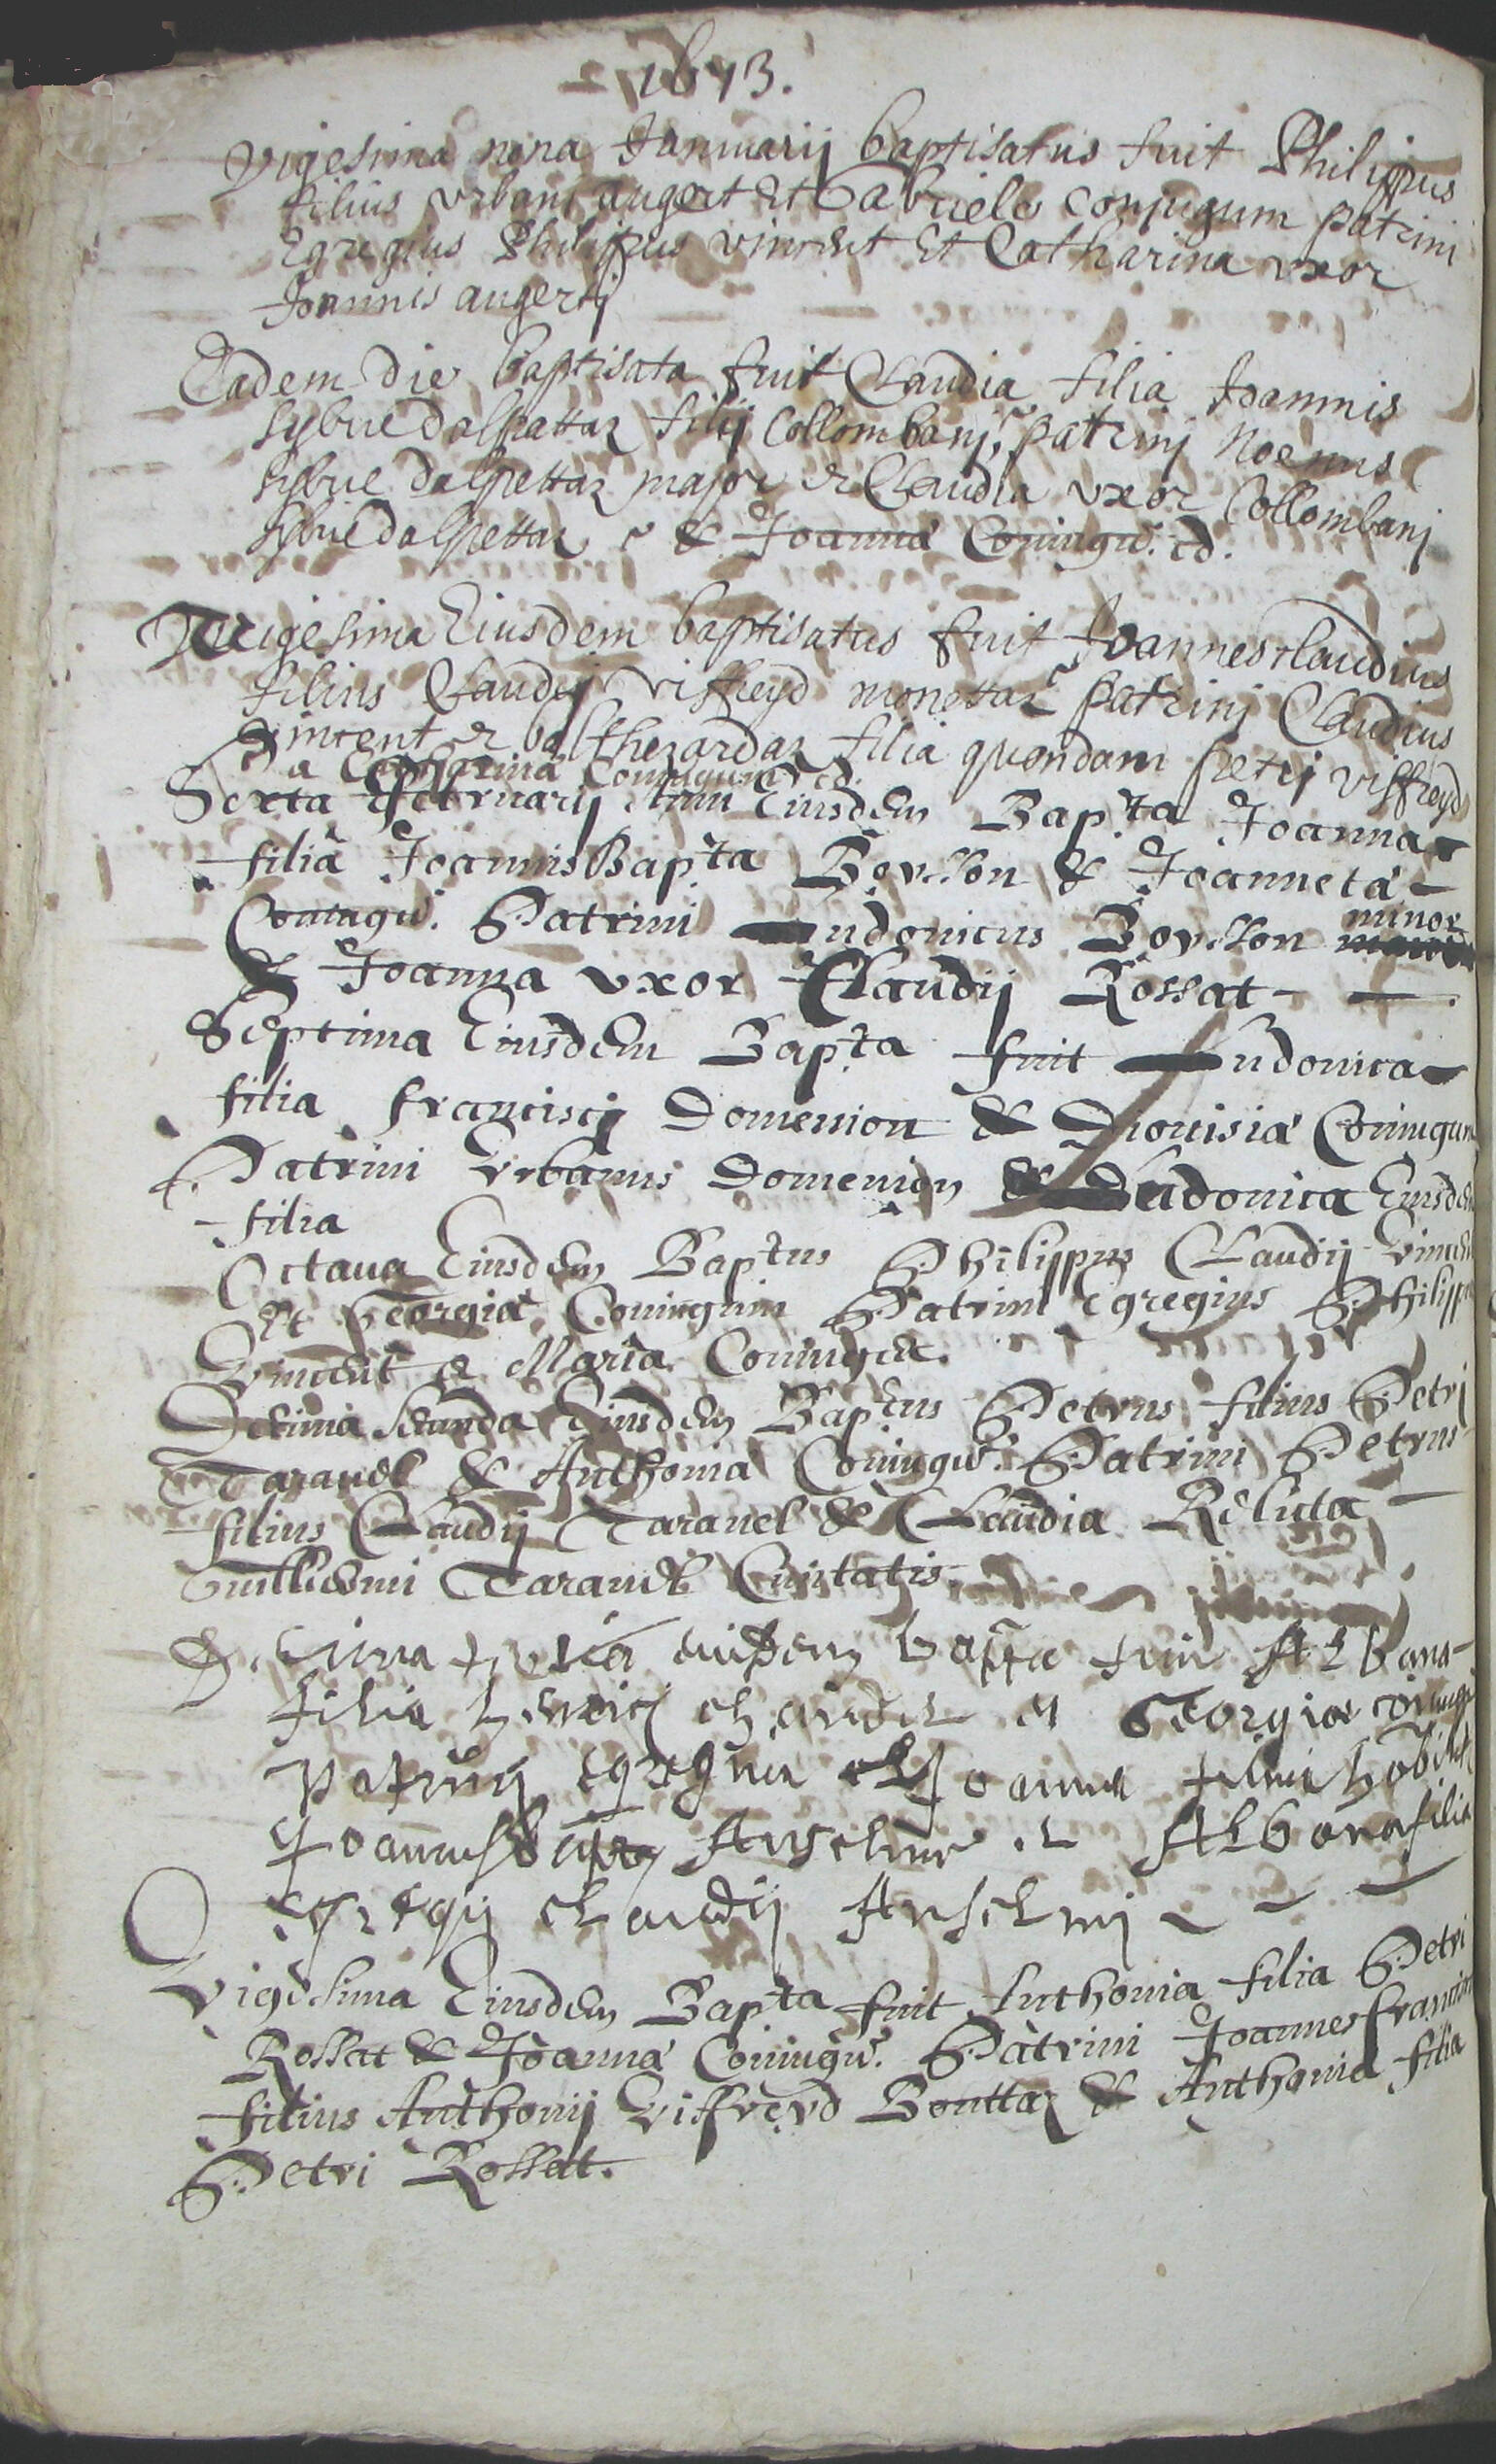 1613.
Vigesima nona Januarij baptisatus fuit Philippus
filius Vrbani augert Et Gabriele conjugum patrini
Egregius Philippus vincent Et Catharina vxor
Joannis augertj
Eadem die baptisata fuit Claudia filia Joannis
sybue dalpettaz filij Collombanj, patrinj Noemus
sybue dalpettaz major et Claudia vxor Collombanj
sybue dalpettaz & Joanna Coniugu. ed.
Trigesima Eiusdem baptisatus fuit Joannes claudius
filius Claudij viffreyd monettaz patrinj Claudius
vincent et balthezardaz filia quondam petrj viffreyd
a Catharina Coniugum ed.
Sexta februarij Anni Eiusdem Bapta Joanna
filia Joannis Bapta Bovsson & Joanneta
Coniugu. Patrini Ludouicus Bovsson minor
& Joanna vxor Claudij Rossat
Septima Eiusdem Bapta fuit Ludouica
filia franciscij Domenion & Dionisia Coniugum
Patrini Vrbanus Domenion & Ludouica Eiusdem
filia
Octaua Eiusdem Baptus Philippus Claudij Vincent
Et Georgia Coniugum Patrini Egregius Philippus
Vincent & Maria Coniuges.
Decima secunda Eiusdem Baptus Petrus filius Petri
Tarauel & Anthonia Coniugu. Patrini Petrus
filius Claudij Tarauel & Claudia Relicta
Guillielmi Tarauel Ciuitatis
Decima tertia eiusdem bapta fuit Albana
filia et Georgia coniugu
patrinj egregius Joannes filius
Joannis bapta Anselme et Albana filia
egregij claudij Anselmj
Vigesima Eiusdem Bapta fuit Anthonia filia Petri
Rossat & Joanna Coniugu. Patrini Joannes francis
filius Anthonij Viffreyd Bouttaz & Anthonia filia
Petri Rossat.